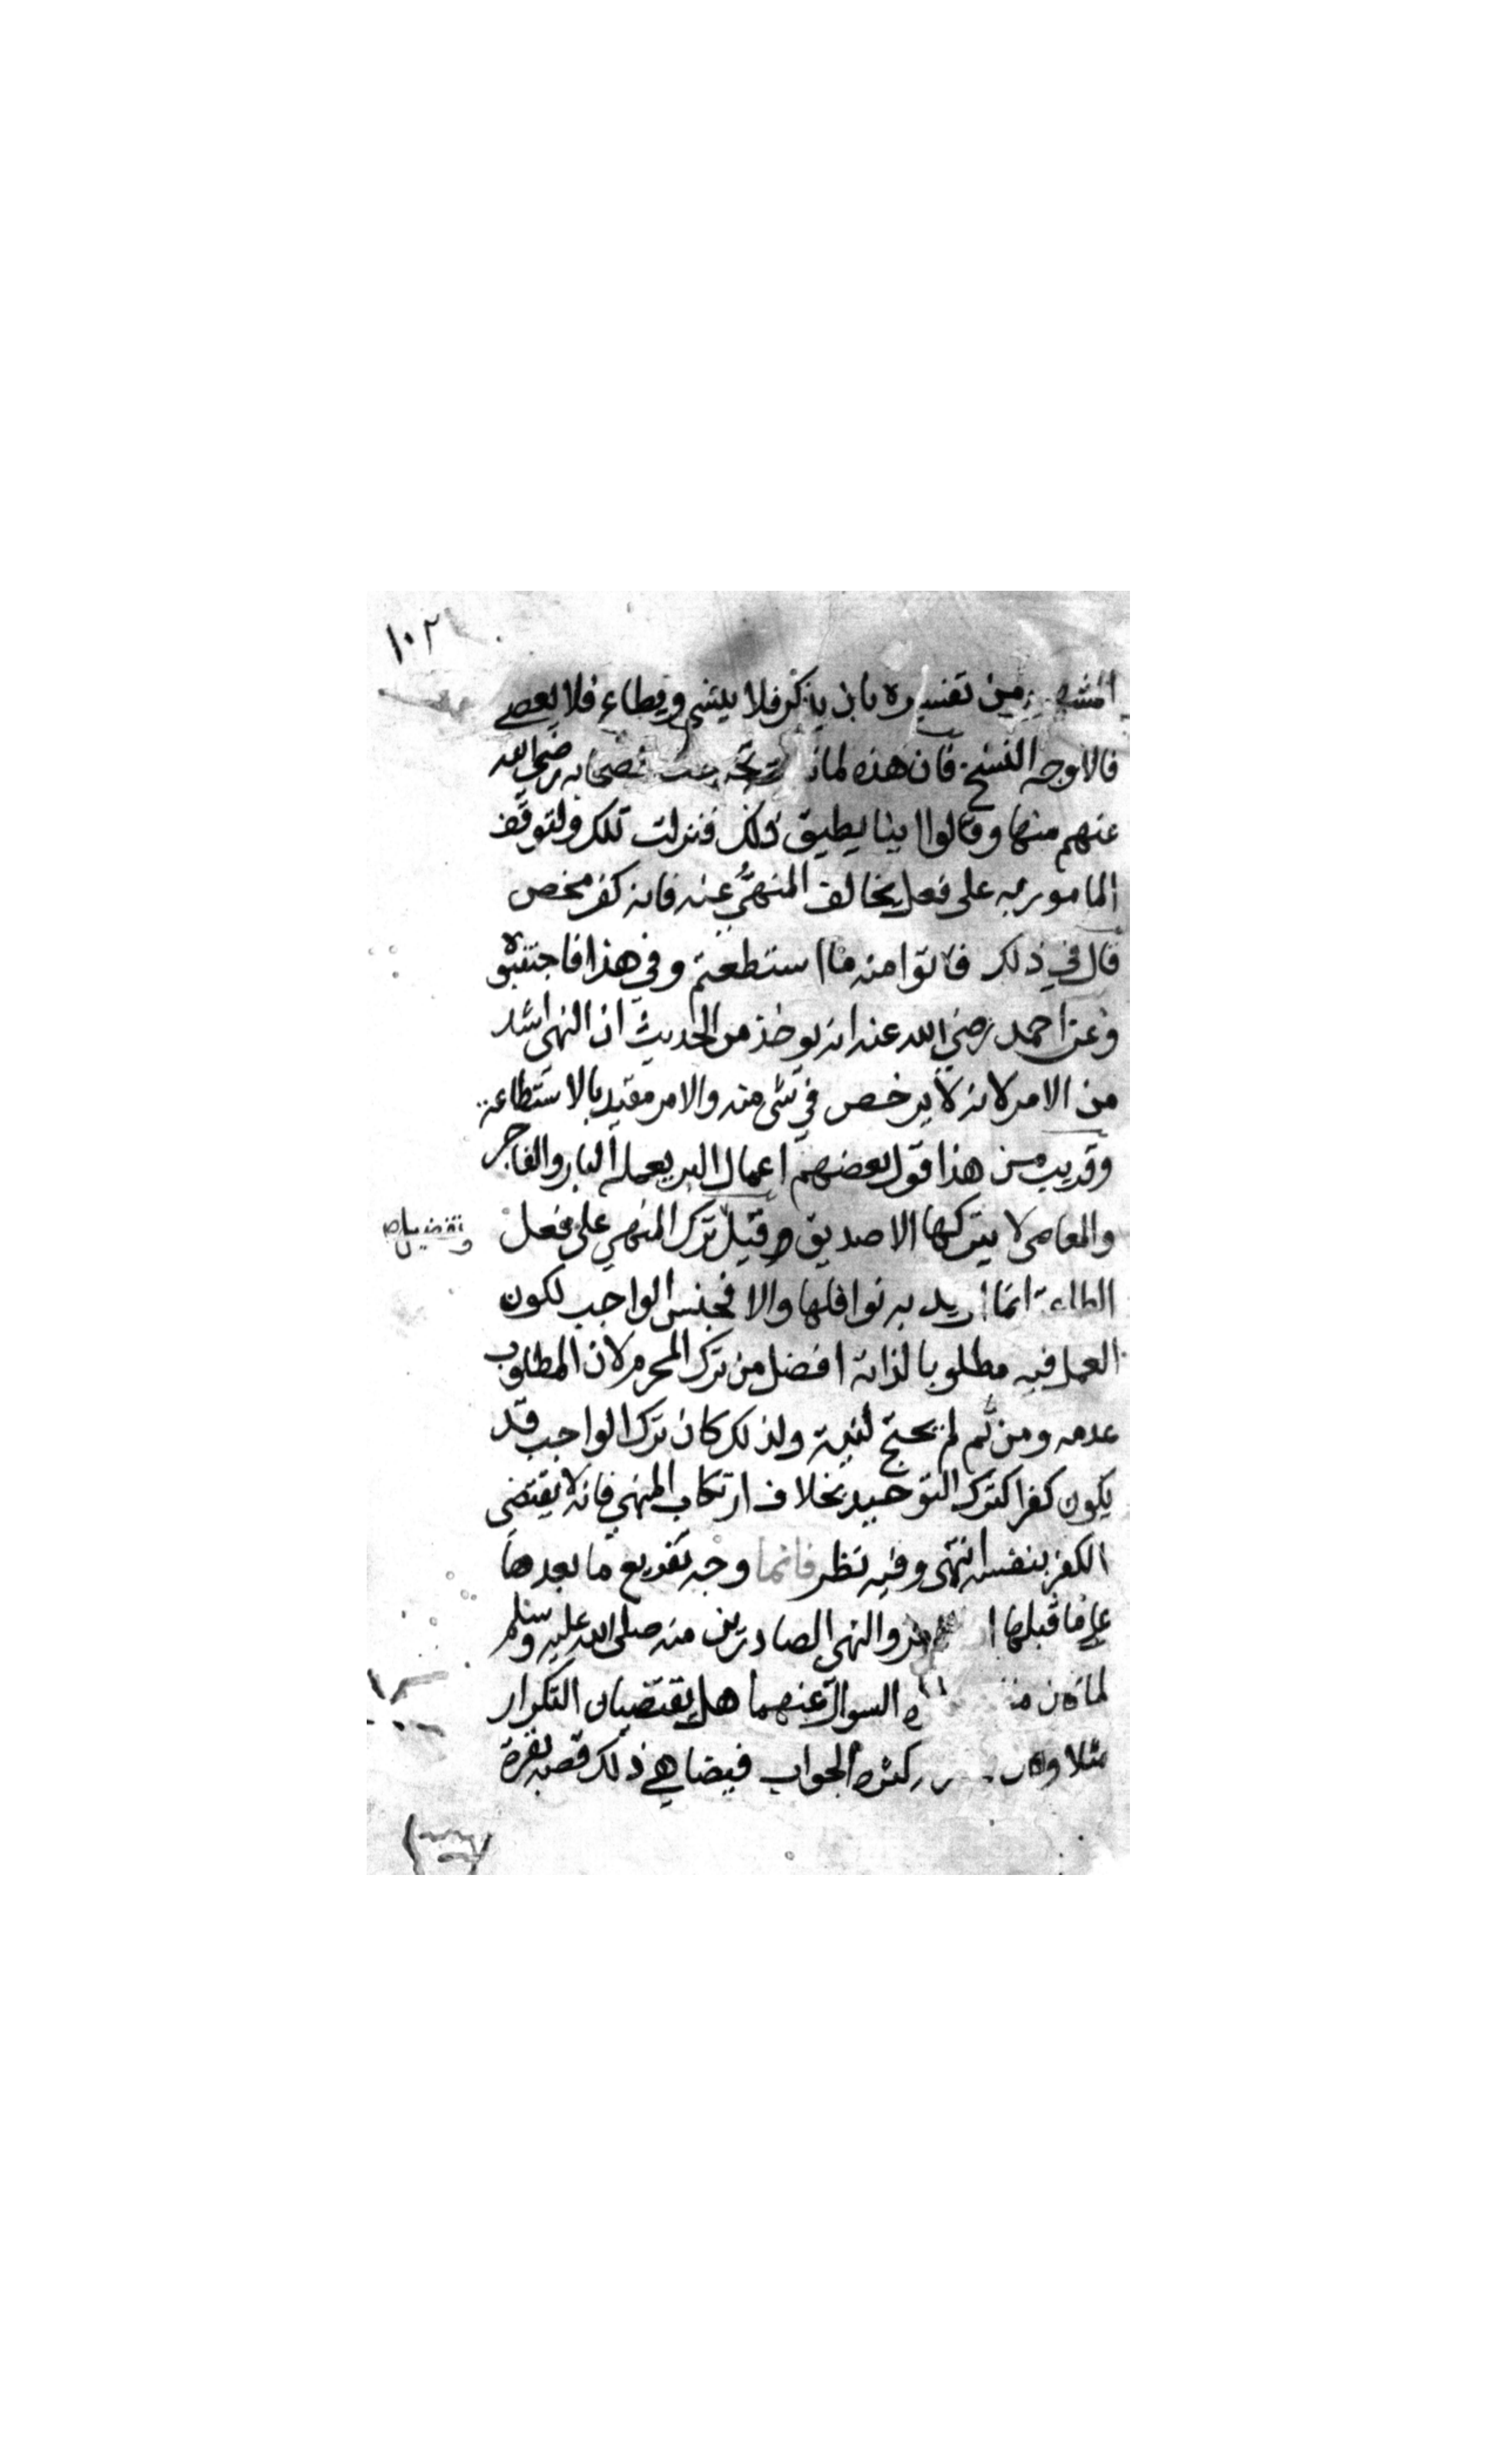 ١٠٢
من تفسيره بان يذكر فلا ينسى ويطاع فلا يعصى
فالاوجه النسخ فان هذه لما رضي الله
عنهم منها وقالوا اينا يطيق ذلك فنزلت تلك ولتوقف
المامور به على فعل يخالف المنهي عنه فانه كفر محض
قال في ذلك فأتوا منه ما استطعتم وفي هذا فاجتنبوه
وعن احمد رضي الله عنه انه يوخذ من الحديث ان النهي اشد
من الامر لانه لا يرخص في شي منه والامر مقيد بالاستطاعة
وقريب من هذا قول بعضهم اعمال البر يعملها البار والفاجر
والمعاصي لا يتركها الا صديق و قيل ترك المنهي على فعل
وتفضيل
الطاعة انما اريد به نوافلها والا فجنس الواجب لكون
العمل فيه مطلوبا لذاته افضل من ترك المحرم لان المطلوب
عدمه ومن ثم لم يحتج لنية ولذلك كان ترك الواجب قد
يكون كفرا كترك التوحيد بخلاف ارتكاب المنهي فانه لا يقتضي
الكفر بنفسه انتهى وفيه نظر فانما وجه تفريع ما بعدها
على ما قبلها والنهي الصادرين منه صلى الله عليه وسلم
لما كان السوال عنهما هل يقتضيان التكرار
مثلا كثرة الجواب فيضاهي ذلك قصة بقرة